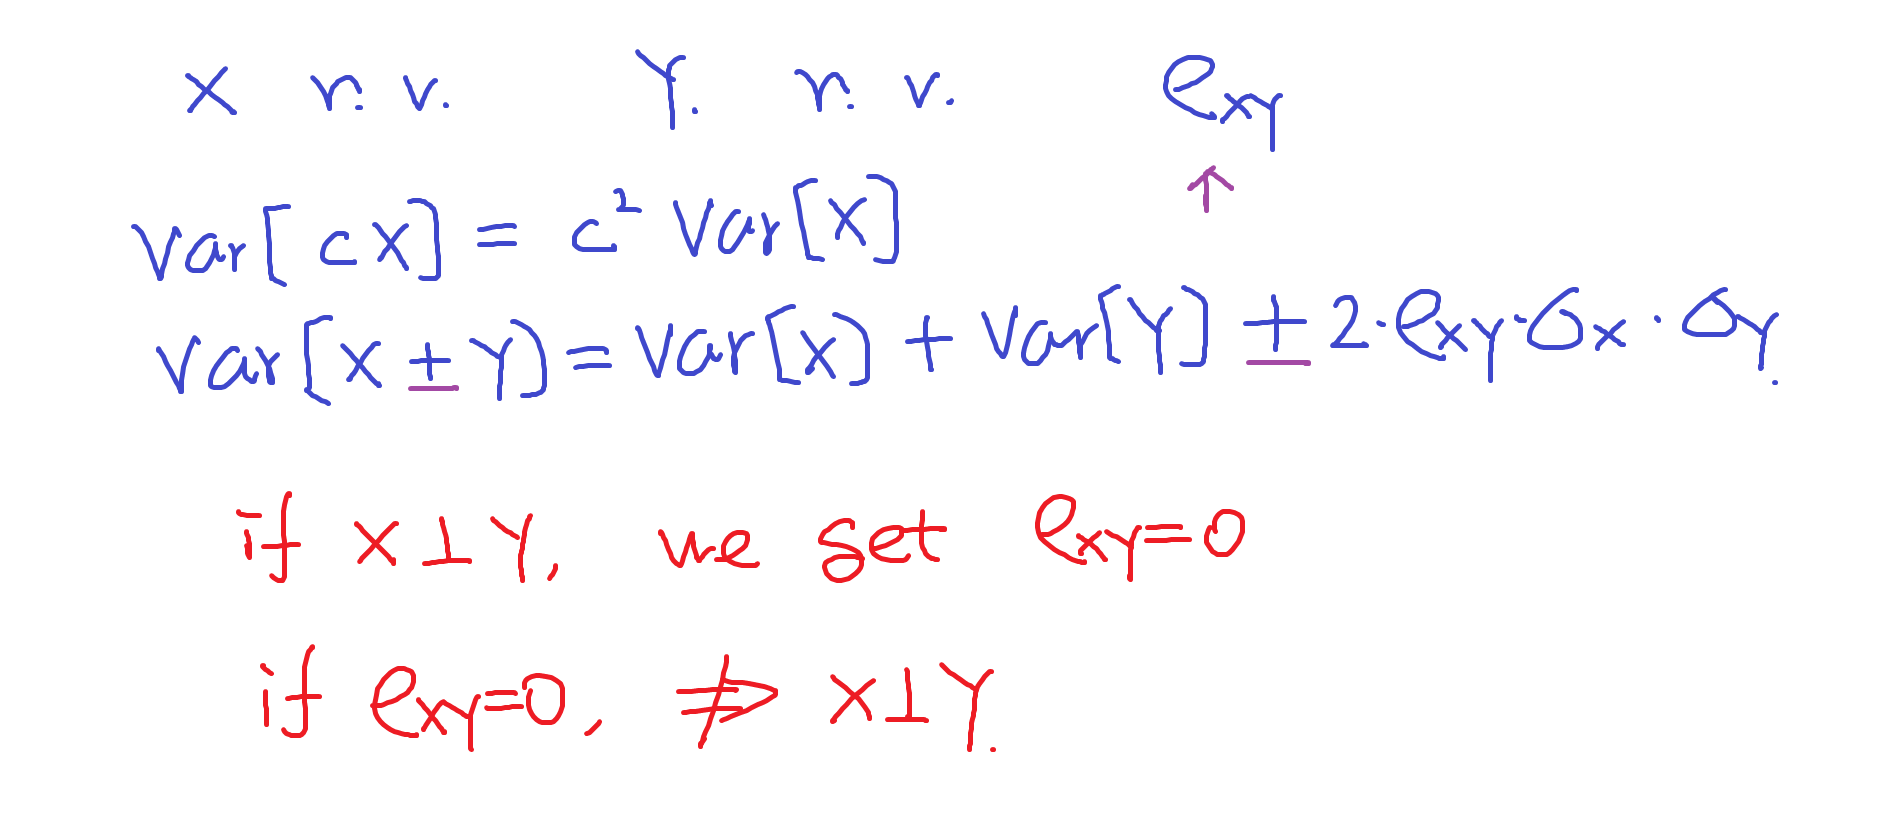 X r.v. Y. r.v. e_XY
↑
Var[cX] = c² Var[X]
Var[X ± Y] = Var[X] + Var[Y] ± 2·e_XY·σ_X·σ_Y.
if X⊥Y, we set e_XY=0
if e_XY=0, ⇏ X⊥Y.